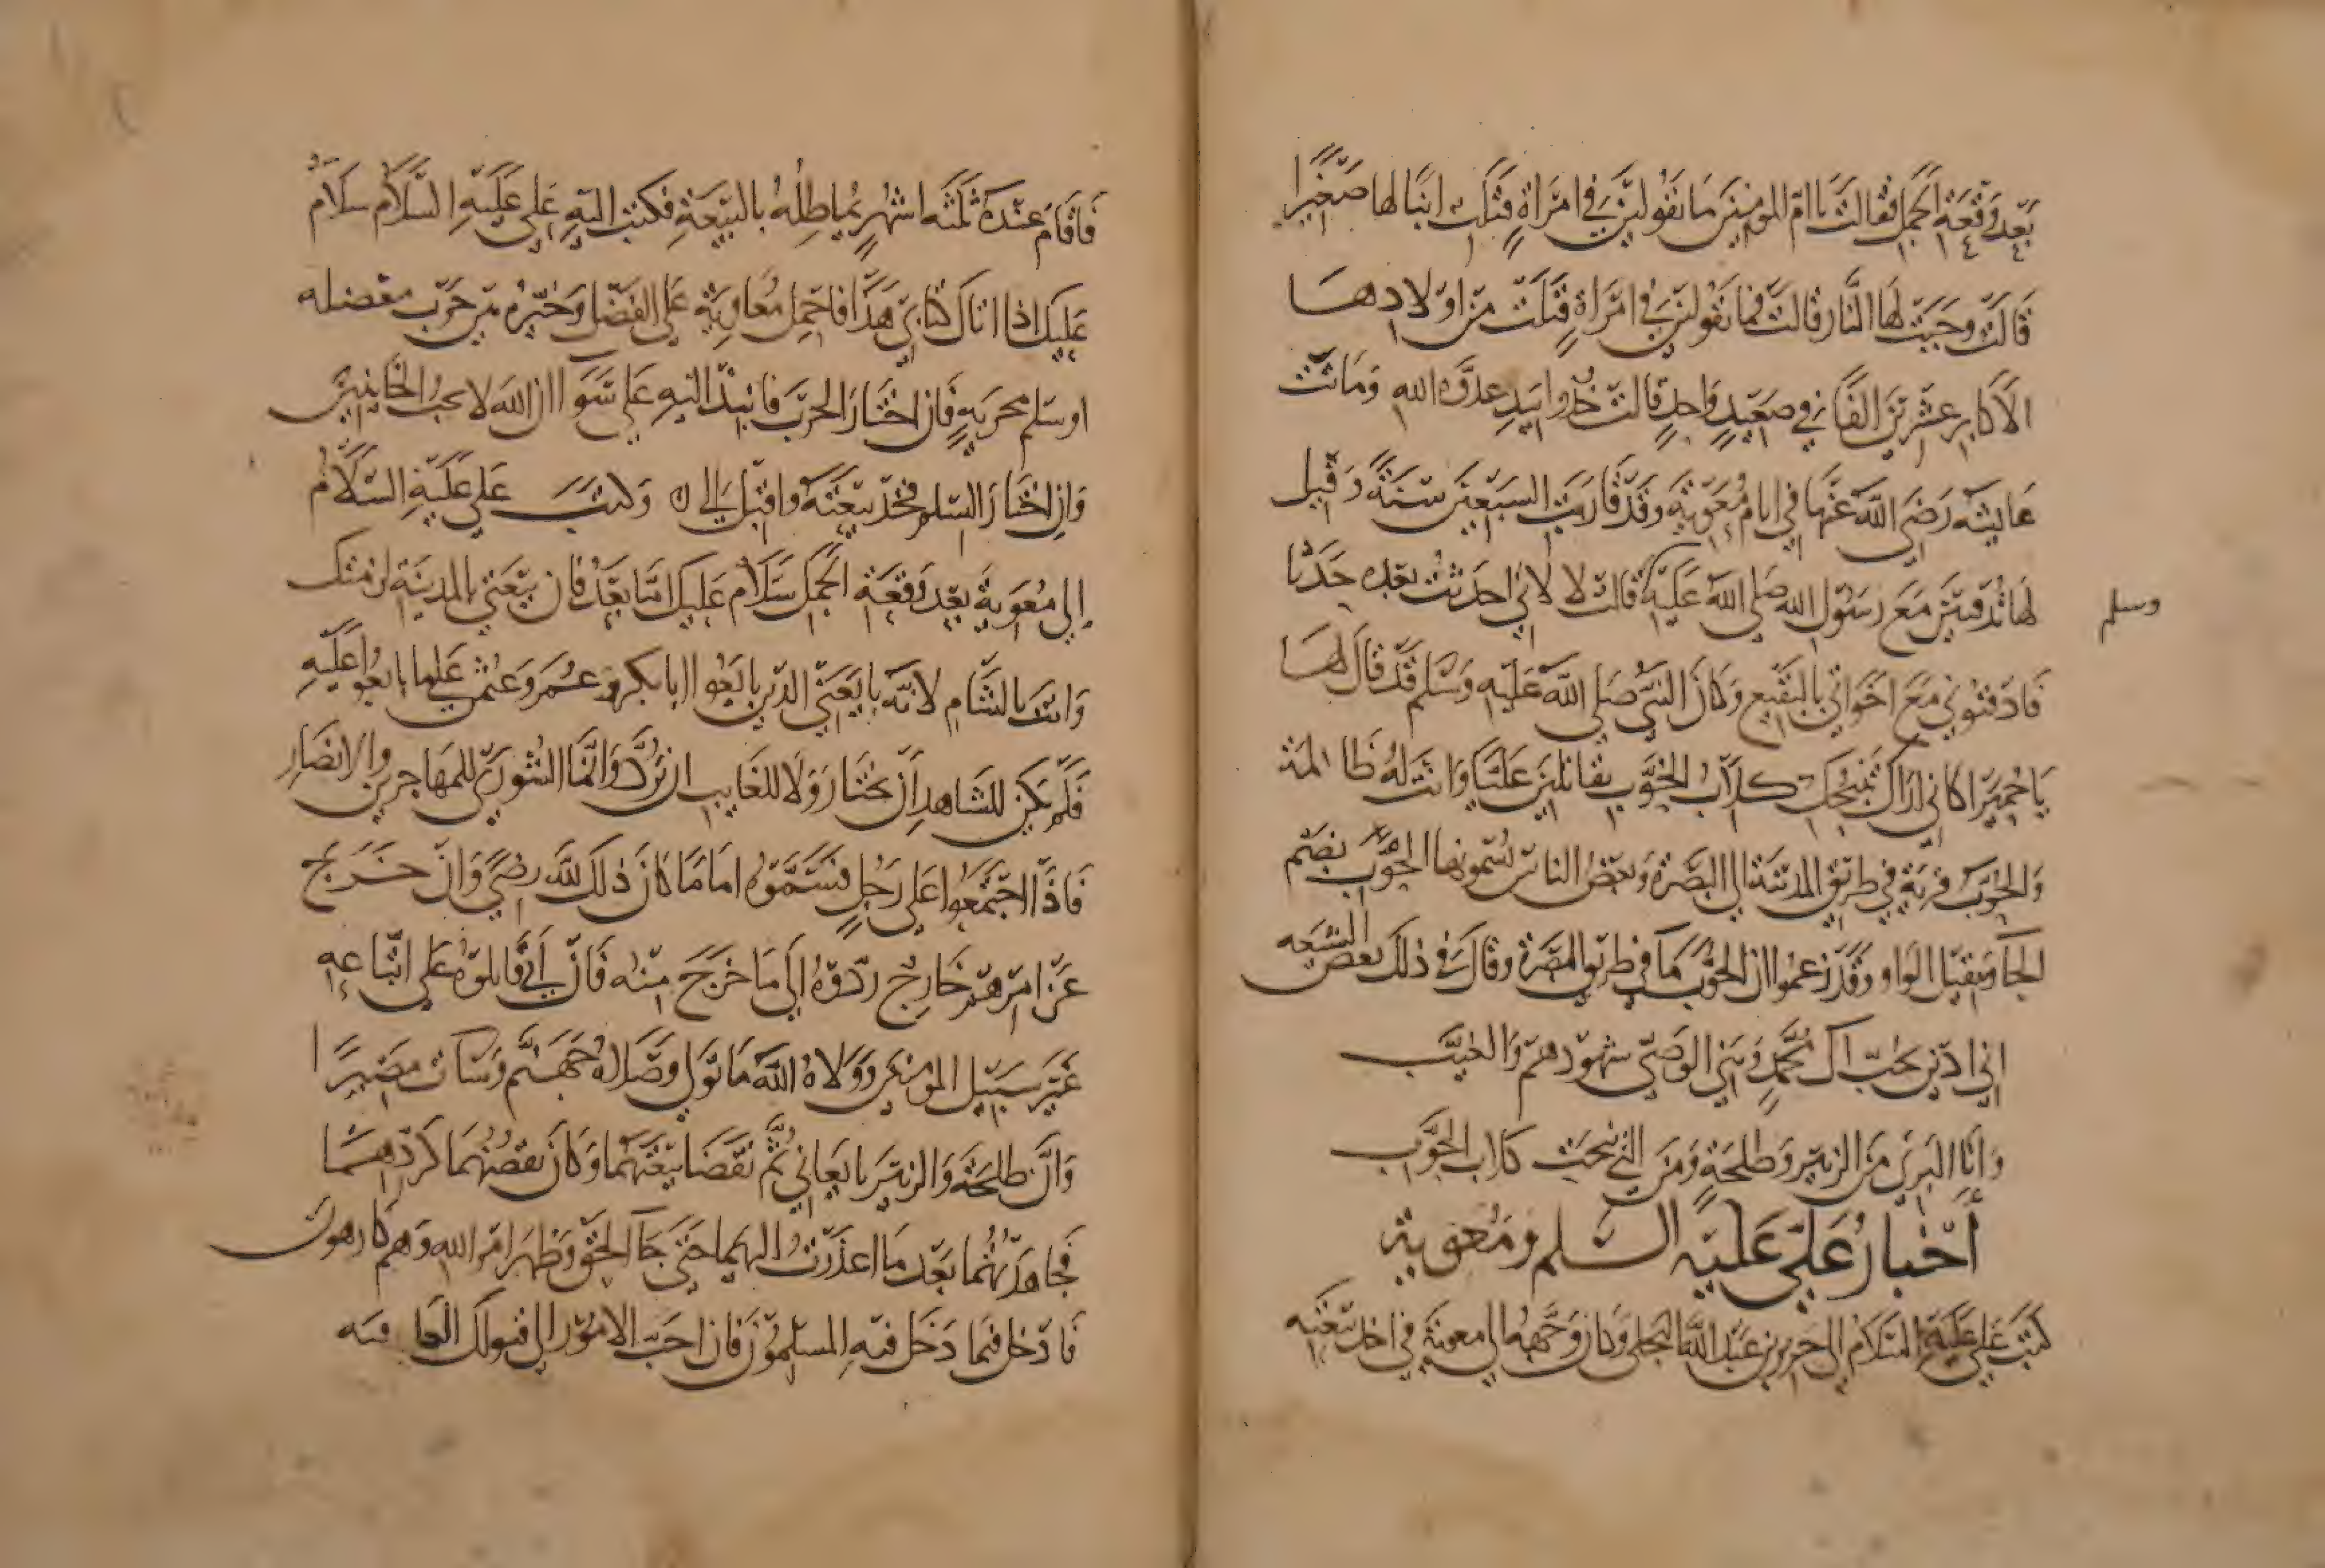 بَعْد وَقْعَةِ الجَمل فقالتْ يا امّ المومنين مَا تَقُولينَ في امْرَاةٍ قَتَلَت ابنًا لها صَغيرًا
قَالَتْ وجَبَتْ لَهَا النَّار قالتْ فما تَقُولينَ في امْرَاةٍ قَتَلَتْ مِنْ اوْلادِهَا
الاَكابِر عشْرينَ الفًا في صعَيدٍ وَاحدٍ قالت خُذُوا بيَدِ عدُوَّة الله وَمَاتَتْ
عَايشَه رَضيَ اللّه عَنْهَا في ايام مُعَويَةَ وقَدْ قَارَبَت السبَعْينَ سنَةً وَقيل
لهَا تُدفنينَ مَعَ رَسُول الله صَلى اللهُ عَلَيْه قالتْ لا لاني احَدَثْتُ بَعْده حَدَثًا
وسلم
فَادْفنُوني مَعَ اخَوَاتي بالبَقْيع وَكَانَ النَّبيّ صَلى اللّه عَلَيْه وَسَلم قَدْ قَالَ لهَا
يَا حُميَرَا كاني ارَاكِ تَنْبَحكِ كلَابُ الحَوْءَب تقَاتلينَ عَليًّا وَانْت لهُ ظَالمَة
وَالحَوْءَب قريَة في طريق المَدينَة الي البَصْرة وَبعَضُ الناس يُسَمُّونهَا الحُوَّب بضَم
الحَا وَتثقيل الوَاو وَقَدْ زعمُوا ان الحَوْءَب مَا في طريق البَصْرَة وَقالَ في ذلكَ بعَضُ الشيَعه
اني ادَيْن بحُبّ آل مُحَمّدٍ وَبَني الوَصّي شهُوْدهم وَالغيَّب
وَانَا البَريَ منَ الزبَيْر وَطلحَةٍ وَمَن التي نبحَت كلاب الحَوْءَب
أَخْبَارُ عَليّ عَلَيْه السَلم وَمُعَويَة
كَتَبَ عَلى عَلَيْه السَّلامُ الي جَرير بن عَبْد اللّه البجلى وَكان وَجَّههُ الي معويَة في اخذ بَيْعَته
فَاقَامَ عنْدَهُ ثَلثَه اشهُرٍ يُماطِلُهُ بالبَيْعَةِ فكتبَ اليْهِ عَلى عَلَيْهِ السَّلامُ سَلَامٌ
عَليْك اذا اتَاكَ كتَابيْ هَذَا فاحْمِل مُعَاويَة عَلى الفَضْل وَخَيّرهُ بَيْن حَرْب معْضله
او سَلم محْربَةٍ فَان اخْتَارَ الحرْبَ فانْبذ اليْهِ عَلى سَوَا ان اللهَ لا يحبُ الخَاينينَ
وَان اخْتَارَ السّلم فخُذْ بَيْعَتَه وَاقْبل اليَّ ه وَكتَبَ عَلي عَليْهِ السَّلَامُ
إلي مُعَويةَ بَعْدَ وَقْعَة الجَمَل سَلَامٌ عَليك امَّا بَعْدُ فان بَيْعَتي بالمدينَة لزمتك
وَانتَ بالشَّامِ لانَّه بايَعَني الذينَ بَايَعُوا ابا بَكر وَعُمرَ وَعثمن عَلى مَا بايعُوا عَلَيْهِ
فَلَم يَكنْ للشَاهدِ أنْ يخْتَارَ وَلَا للغَايب ان يَرُدَّ وَانَّمَا الشُّورَى للمهَاجرينَ والانصَارِ
فَاذَا اجْتَمَعُوا عَلى رَجُلٍ فسَمَّوْهُ امَامًا كَانَ ذلكَ للّه رضًى وَانْ خَرَجَ
عَنْ امْرهِمْ خَارجٌ ردُّوْهُ إلَي مَا خَرَجَ منْهُ فَانْ أَبَى قَاتلوْهُ عَلى اتّبَاعهِ
غَيْرَ سَبيْل المومنينَ وَوَلاهُ اللّه مَا تَوَلي وَصَّلاهُ جَهَنَّم وَسَات مصَيرًا
وَانَّ طلحَةَ وَالزبَيْرَ بايَعَاني ثُمَّ نقَضَا بَيْعَتَهُمَا وَكَانَ نقضُهُمَا كَردّهمَا
فجاهَدْتُهُمَا بَعْد مَا اعذَرْتُ اليْهمَا حَتي جَآ الحَقّ وَظهَرَ امْر الله وَهم كَارهون
فَادْخل فيمَا دَخَل فيهِ المسلمُوْنَ فَان احَبّ الامُوْر الي قبولك العَافيَه